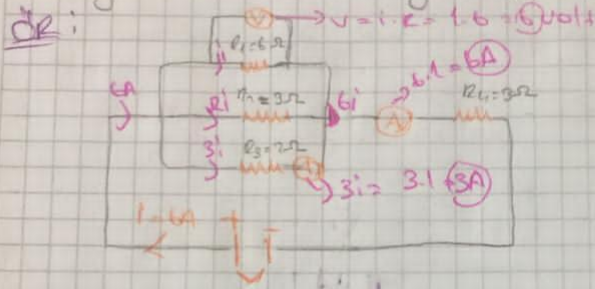 ÖR:
V
V = i.R = 1.6 = 6 volt
R₁=6Ω
i
6.1 = 6A
6A
2i
R₂=3Ω
6i
A
R₄=3Ω
3i
R₃=2Ω
A
3i = 3.1 = 3A
I = 6A
+
-
V